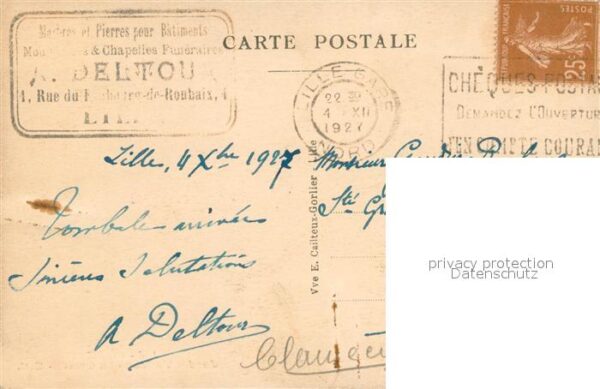 Marbres et Pierres pour Bâtiments
& Chapelles Funéraires
A. DELTOUR
1, Rue du Faubourg-de-Roubaix, 1
LILLE
CARTE POSTALE
POSTES
25
LILLE GARE
22
4 XII
1927
NORD
CHÈQUES POSTAUX
DEMANDEZ L'OUVERTURE
D'EN COMPTE COURANT
Lille, 4 Xbre 1927
Tombale arrivée
Sincères Salutations
A Deltour
Monsieur
Ste
Vve E. Cailteux-Gorlier - Lille
privacy protection
Datenschutz